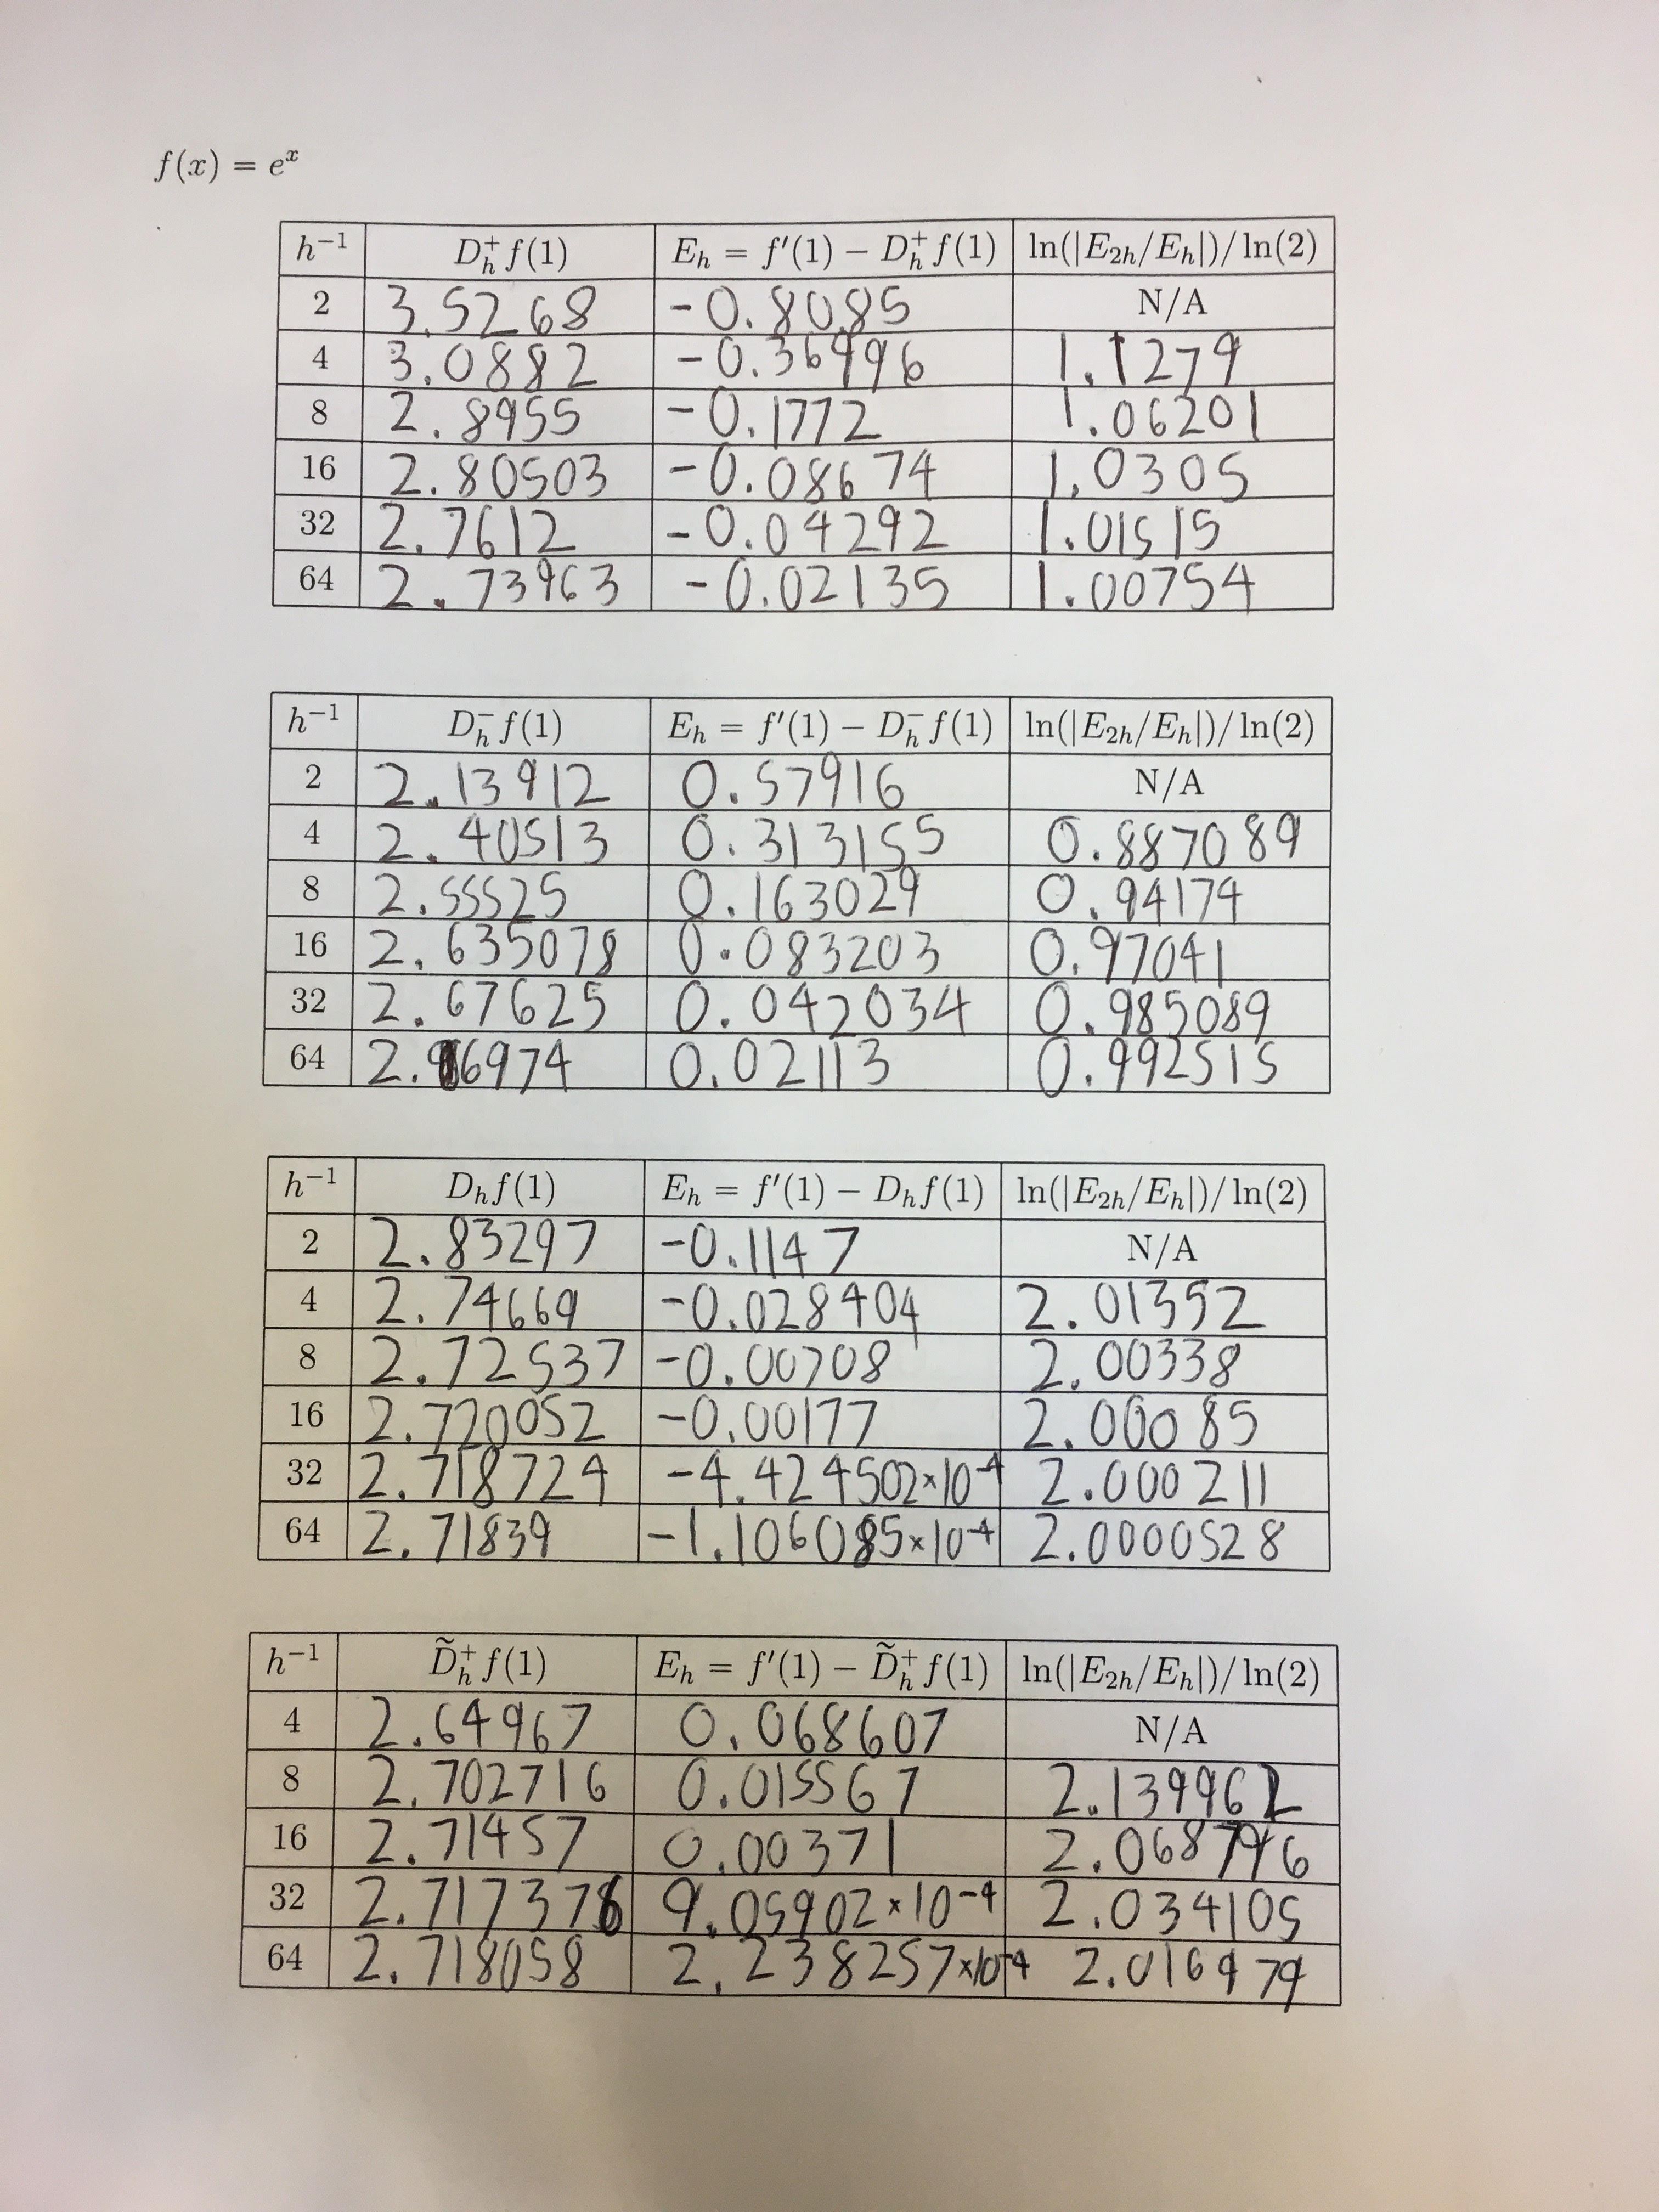 f(x) = e^x
h^{-1} D_h^+ f(1) E_h = f'(1) − D_h^+ f(1) ln(|E_{2h}/E_h|)/ ln(2)
2 3.5268 -0.8085 N/A
4 3.0882 -0.36996 1.1279
8 2.8955 -0.1772 1.06201
16 2.80503 -0.08674 1.0305
32 2.7612 -0.04292 1.01515
64 2.73963 -0.02135 1.00754
h^{-1} D_h^- f(1) E_h = f'(1) − D_h^- f(1) ln(|E_{2h}/E_h|)/ ln(2)
2 2.13912 0.57916 N/A
4 2.40513 0.313155 0.887089
8 2.55525 0.163029 0.94174
16 2.635078 0.083203 0.97041
32 2.67625 0.042034 0.985089
64 0.02113 0.992515
h^{-1} D_h f(1) E_h = f'(1) − D_h f(1) ln(|E_{2h}/E_h|)/ ln(2)
2 2.83297 -0.1147 N/A
4 2.74669 -0.028404 2.01352
8 2.72537 -0.00708 2.00338
16 2.720052 -0.00177 2.00085
32 2.718724 -4.424502×10^{-4} 2.000211
64 2.71839 -1.106085×10^{-4} 2.0000528
h^{-1} D̃_h^+ f(1) E_h = f'(1) − D̃_h^+ f(1) ln(|E_{2h}/E_h|)/ ln(2)
4 2.64967 0.068607 N/A
8 2.702716 0.015567 2.139962
16 2.71457 0.00371
32 2.717376 9.05902×10^{-4} 2.034105
64 2.718058 2.238257×10^{-4} 2.016979